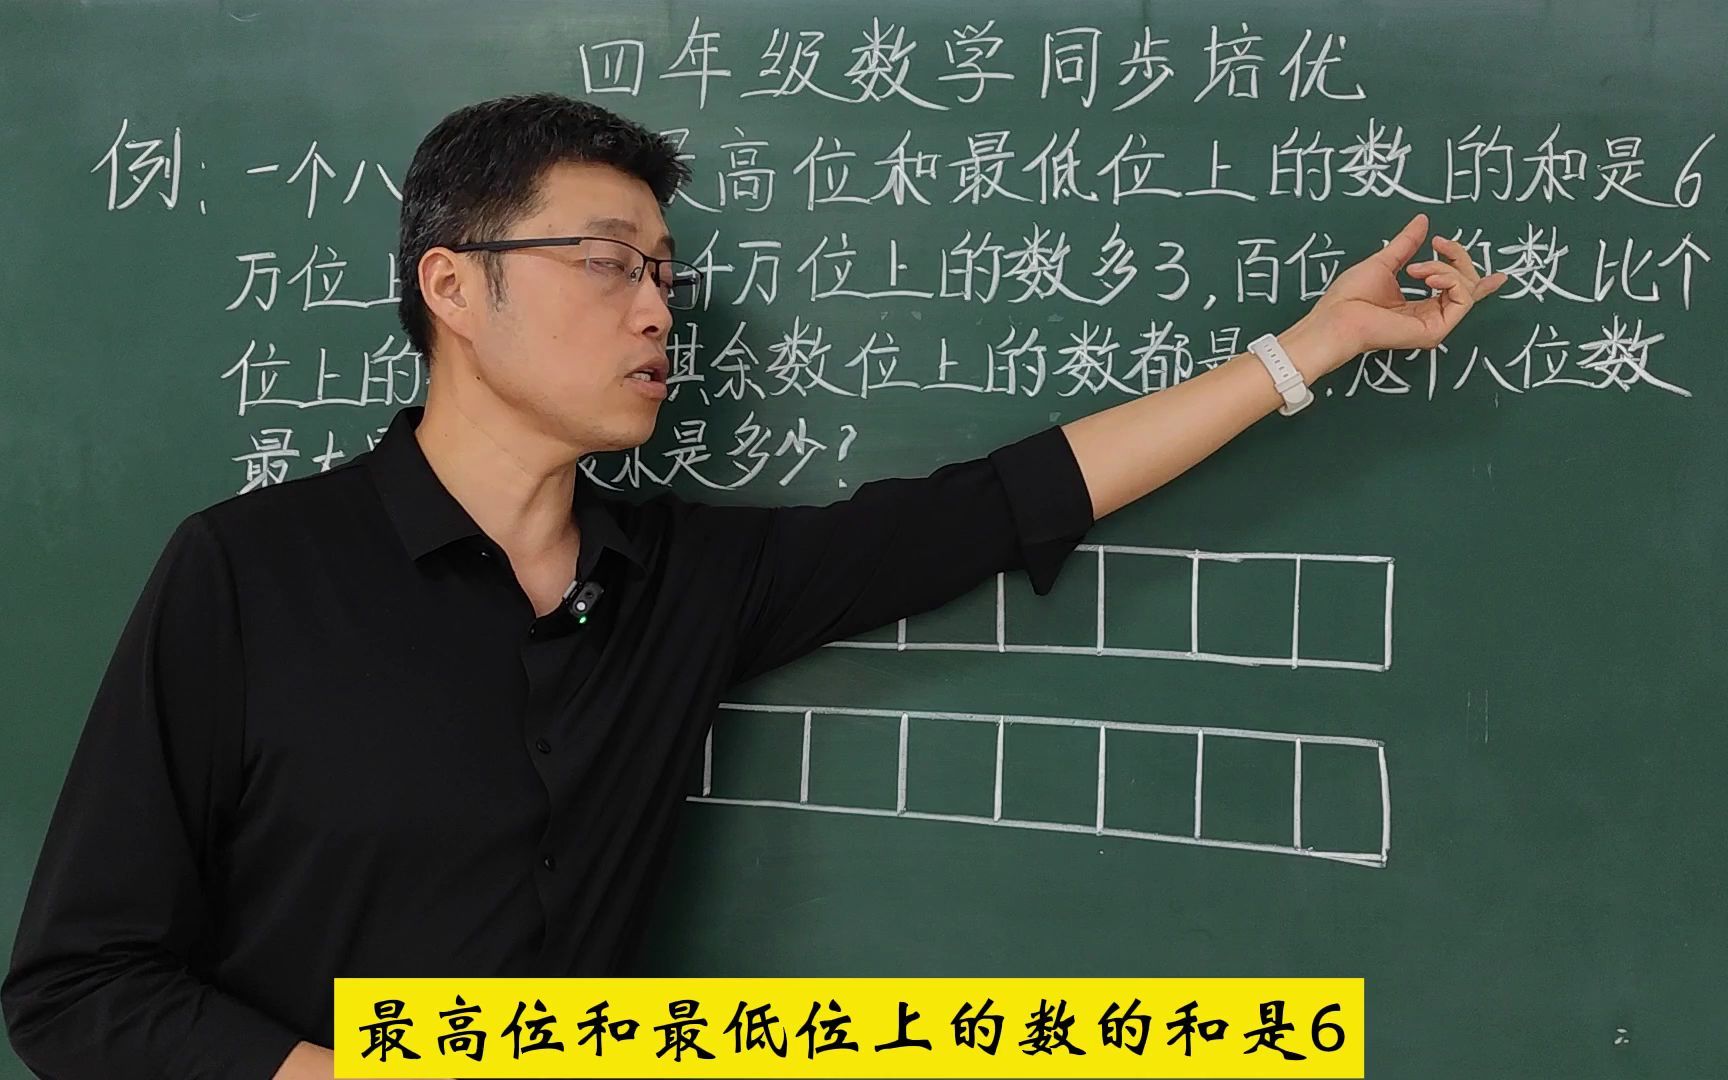 四年级数学同步培优
例：一个八 最高位和最低位上的数的和是6
万位上 千万位上的数多3，百位上的数比个
位上的 其余数位上的数都是 ．这个八位数
最大是 是多少？
最高位和最低位上的数的和是6